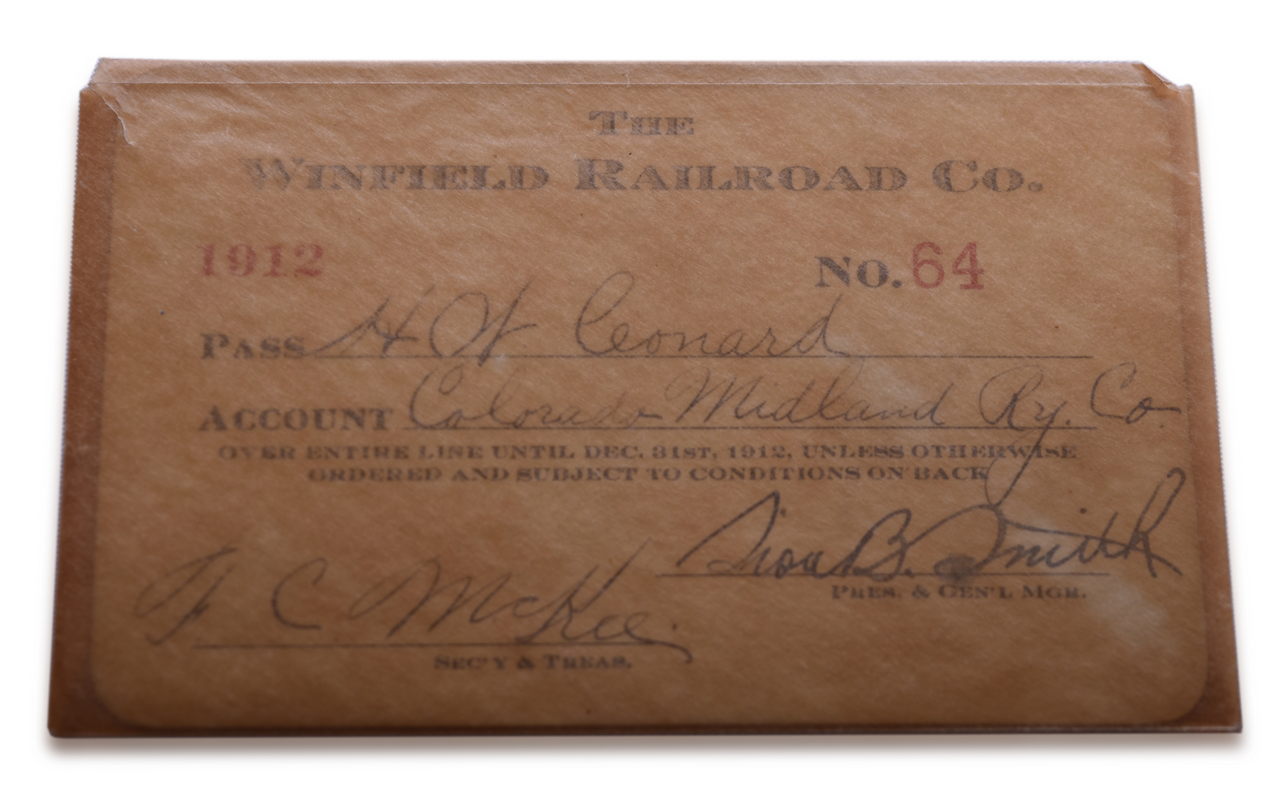 THE
WINFIELD RAILROAD CO.
1912 No. 64
PASS H W Leonard
ACCOUNT Colorado Midland Ry. Co.
OVER ENTIRE LINE UNTIL DEC. 31ST, 1912, UNLESS OTHERWISE
ORDERED AND SUBJECT TO CONDITIONS ON BACK
B. Smith
PRES. & GEN'L MGR.
F C McKee.
SEC'Y & TREAS.